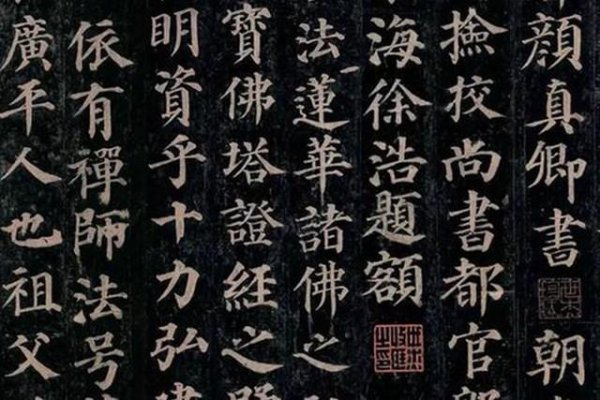 顔真卿書 朝
撿挍尚書都官
海徐浩題額
法蓮華諸佛之
寶佛塔證経之
明資乎十力弘
依有禪師法号
廣平人也祖父